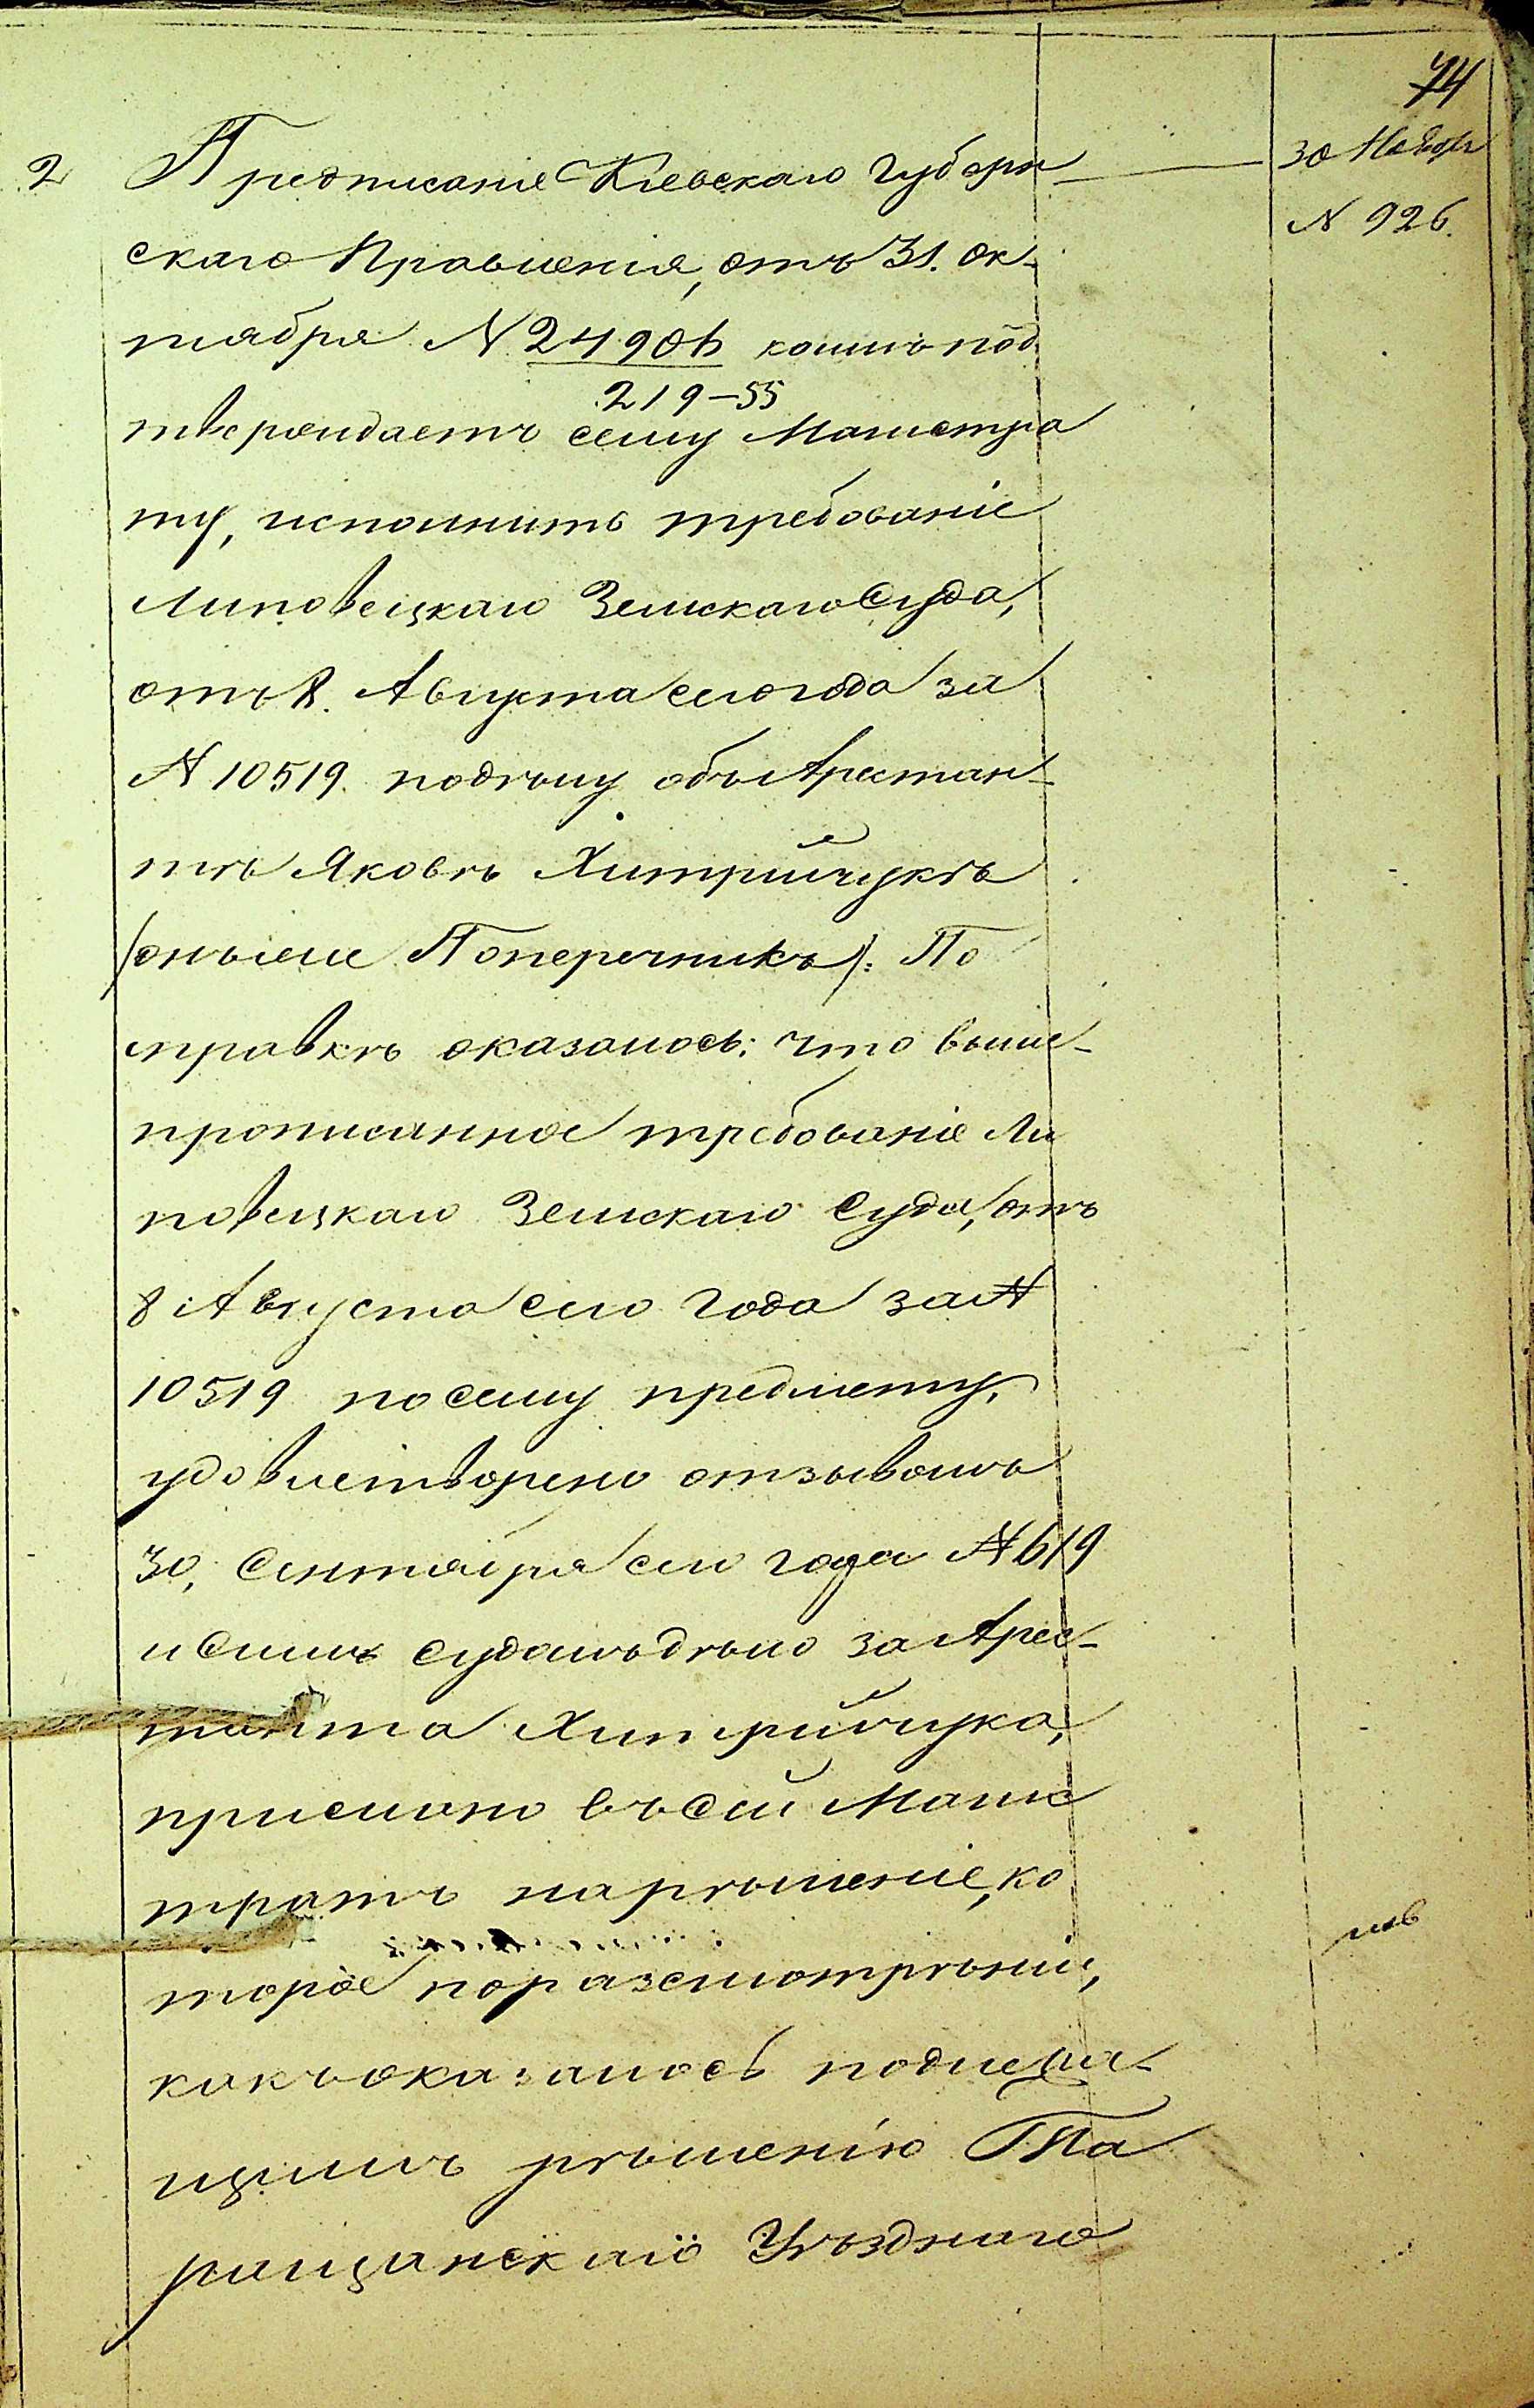 74
30 Ноябр
N 926.
2 Предписаніе Кіевскаго Губерн
скаго Правленія, отъ 31. Ок-
тября N 24906 коимъ под
219-55
тверждаетъ сему Магистра
ту, исполнить требованіе
Липовецкаго Земскаго Суда,
отъ 8. Августа сего года за
N 10519. по дѣлу объ Арестан-
тѣ Яковѣ Хитрийчукѣ
(онъ же Поперечникъ). По
справкѣ оказалось: что выше-
прописанное требованіе Ли
повецкаго Земскаго Суда, отъ
8 Августа сего года за N
10519 по сему предмету,
удовлетворено отзывомъ
30. Сентября сего года N 619
и симъ Судомъ дѣло за Арес-
танта Хитрийчука,
прислано въ сей Магис
тратъ на рѣшеніе, ко
торое по разсмотрѣніи,
какъ оказалось подлежа-
щимъ рѣшенію Та
ращанскаго Уѣзднаго